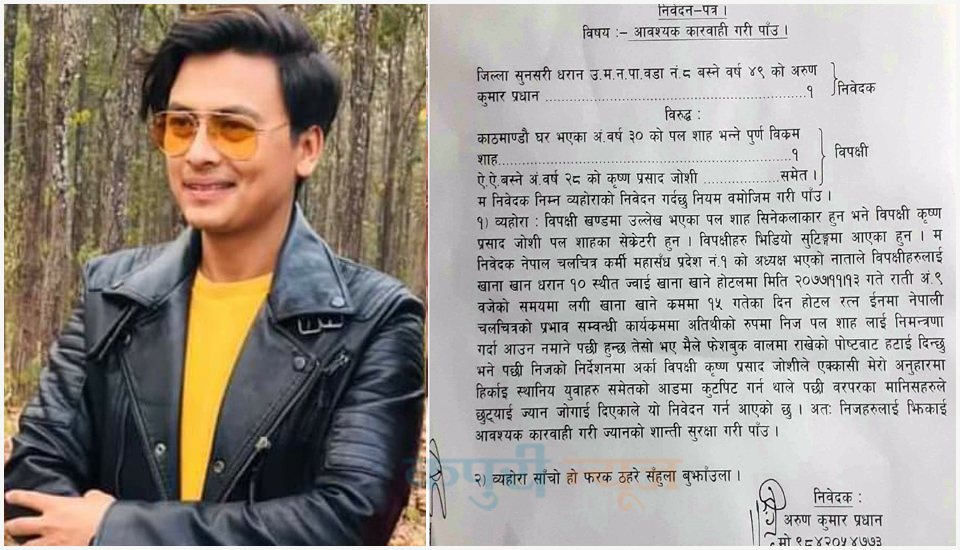 निवेदन-पत्र ।
विषय :- आवश्यक कारवाही गरी पाँउ ।
जिल्ला सुनसरी धरान उ.म.न.पा.वडा नं.८ बस्ने वर्ष ४९ को अरुण
कुमार प्रधान ........................................................१ निवेदक
विरुद्ध :
काठमाण्डौ घर भएका अं.वर्ष ३० को पल शाह भन्ने पुर्ण विक्रम
शाह..............................................................१ विपक्षी
ऐ.ऐ.बस्ने अं.वर्ष २८ को कृष्ण प्रसाद जोशी ................समेत ।
म निवेदक निम्न व्यहोराको निवेदन गर्दछु नियम वमोजिम गरी पाँउ ।
१) व्यहोरा : विपक्षी खण्डमा उल्लेख भएका पल शाह सिनेकलाकार हुन भने विपक्षी कृष्ण
प्रसाद जोशी पल शाहका सेक्रेटरी हुन । विपक्षीहरु भिडियो सुटिङ्गमा आएका हुन । म
निवेदक नेपाल चलचित्र कर्मी महासँघ प्रदेश नं.१ को अध्यक्ष भएको नाताले विपक्षीहरुलाई
खाना खान धरान १० स्थीत ज्वाई खाना खाने होटलमा मिति २०७७।११।१३ गते राती अं.९
वजेको समयमा लगी खाना खाने क्रममा १५ गतेका दिन होटल रत्न ईनमा नेपाली
चलचित्रको प्रभाव सम्वन्धी कार्यक्रममा अतिथीको रुपमा निज पल शाह लाई निमन्त्रणा
गर्दा आउन नमाने पछी हुन्छ तेसो भए मैले फेशबुक वालमा राखेको पोष्टवाट हटाई दिन्छु
भने पछी निजको निर्देशनमा अर्का विपक्षी कृष्ण प्रसाद जोशीले एक्कासी मेरो अनुहारमा
हिर्काइ स्थानिय युवाहरु समेतको आडमा कुटपिट गर्न थाले पछी वरपरका मानिसहरुले
छुट्याई ज्यान जोगाई दिएकाले यो निवेदन गर्न आएको छु । अतः निजहरुलाई झिकाई
आवश्यक कारवाही गरी ज्यानको शान्ती सुरक्षा गरी पाँउ ।
कपुची न्यूज
२) व्यहोरा साँचो हो फरक ठहरे सँहुला बुझाँउला ।
निवेदक :
अरुण कुमार प्रधान
मो ९८४२०५४७७३